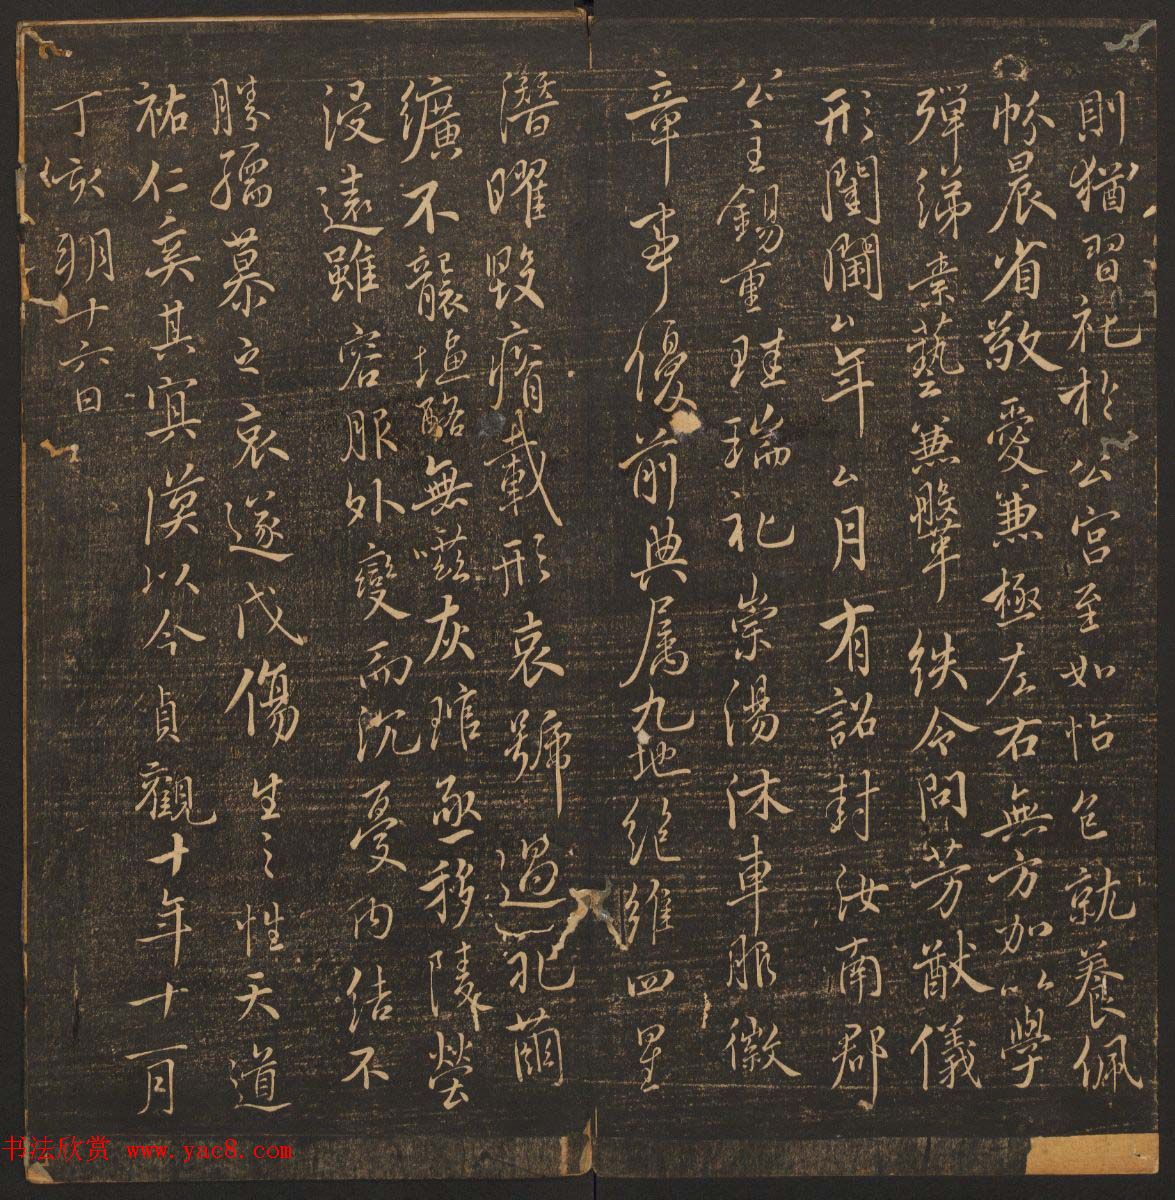 則猶習礼於公宮至如怡色就養佩
帉晨省敬愛兼極左右無方加以學
彈綈素藝兼鞶紩令問芳猷儀
形閨閫厶年厶月有詔封汝南郡
公主錫重珪瑞礼崇湯沐車服徽
章事優前典属九地絶維四星
潛曜毀瘠載形哀號過礼繭
纊不襲塩酪無嗞灰琯亟移陵塋
浸遠雖容服外變而沉憂内结不
勝孺慕之哀遂戊傷生之性天道
祐仁奚其冥漠以今貞觀十年十一月
丁亥朔十六日
书法欣赏 www.yac8.com